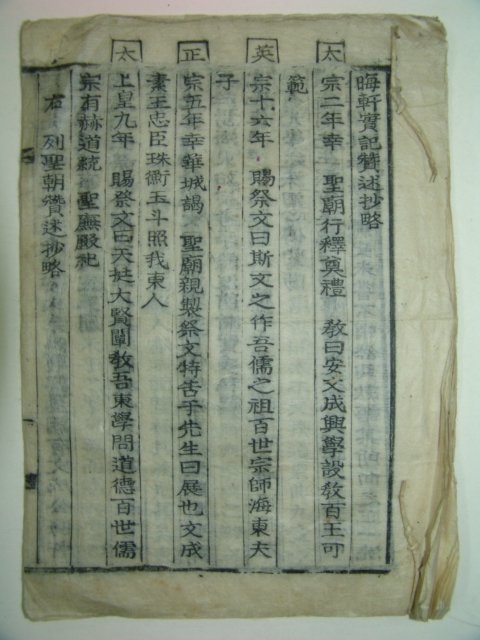 晦軒實記贊述抄略
太
宗二年幸　聖廟行釋奠禮　教曰安文成興學設教百王可
範
英
宗十六年　賜祭文曰斯文之作吾儒之祖百世宗師海東夫
子
正
宗五年幸華城謁　聖廟親製祭文特告于先生曰展也文成
素王忠臣珠衡玉斗照我東人
太
上皇九年　賜祭文曰天挺大賢闡教吾東學問道德百世儒
宗有赫道統　聖廡殷祀
右　列聖朝贊述抄略